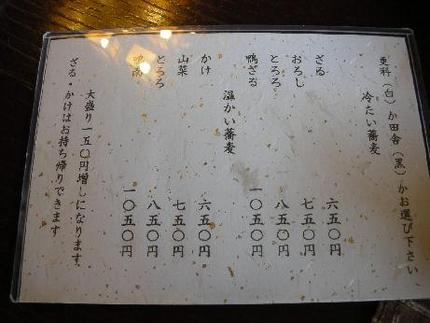 更科（白）か田舎（黒）かお選び下さい
冷たい蕎麦
ざる 六五〇円
おろし 七五〇円
とろろ 八五〇円
鴨ざる 一〇五〇円
温かい蕎麦
かけ 六五〇円
山菜 七五〇円
とろろ 八五〇円
南 一〇五〇円
大盛り一五〇円増しになります
ざる・かけはお持ち帰りできます